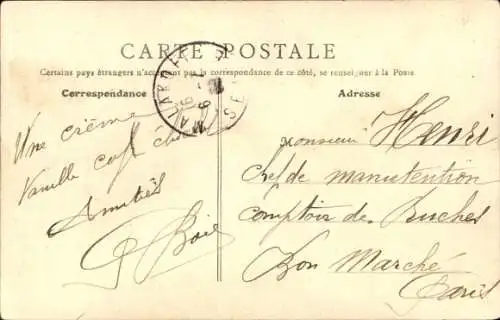 CARTE POSTALE
Certains pays étrangers n'acceptent pas la correspondance de ce côté, se renseigner à la Poste
Correspondance
Adresse
Une crème
Vanille café
Amitiés
Monsieur Henri
chef de manutention
comptoir de Ruches
Bon Marché
Paris